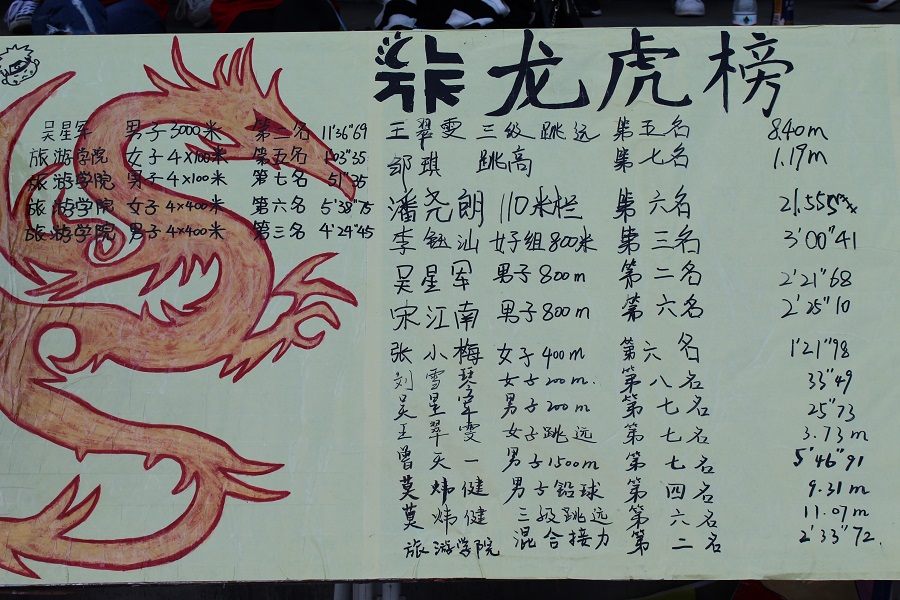 龙虎榜
吴星军 男子3000米 第二名 11'36"69
旅游学院 女子4×100米 第五名 1'03"35
旅游学院 男子4×100米 第七名 51"35
旅游学院 女子4×400米 第六名 5'38"75
旅游学院 男子4×400米 第三名 4'24"45
王翠雯 三级跳远 第五名 8.40m
邹琪 跳高 第七名 1.19m
潘尧朗 110米栏 第六名 21.55
李钰汕 女子组800米 第三名 3'00"41
吴星军 男子800m 第二名 2'21"68
宋江南 男子800m 第六名 2'25"10
张小梅 女子400m 第六名 1'21"98
刘雪琴 女子200m. 第八名 33"49
吴星军 男子200m 第七名 25"73
王翠雯 女子跳远 第七名 3.73m
曾天一 男子1500m 第七名 5'46"91
莫炜健 男子铅球 第四名 9.31m
莫炜健 三级跳远 第六名 11.07m
旅游学院 混合接力 第二名 2'33"72.